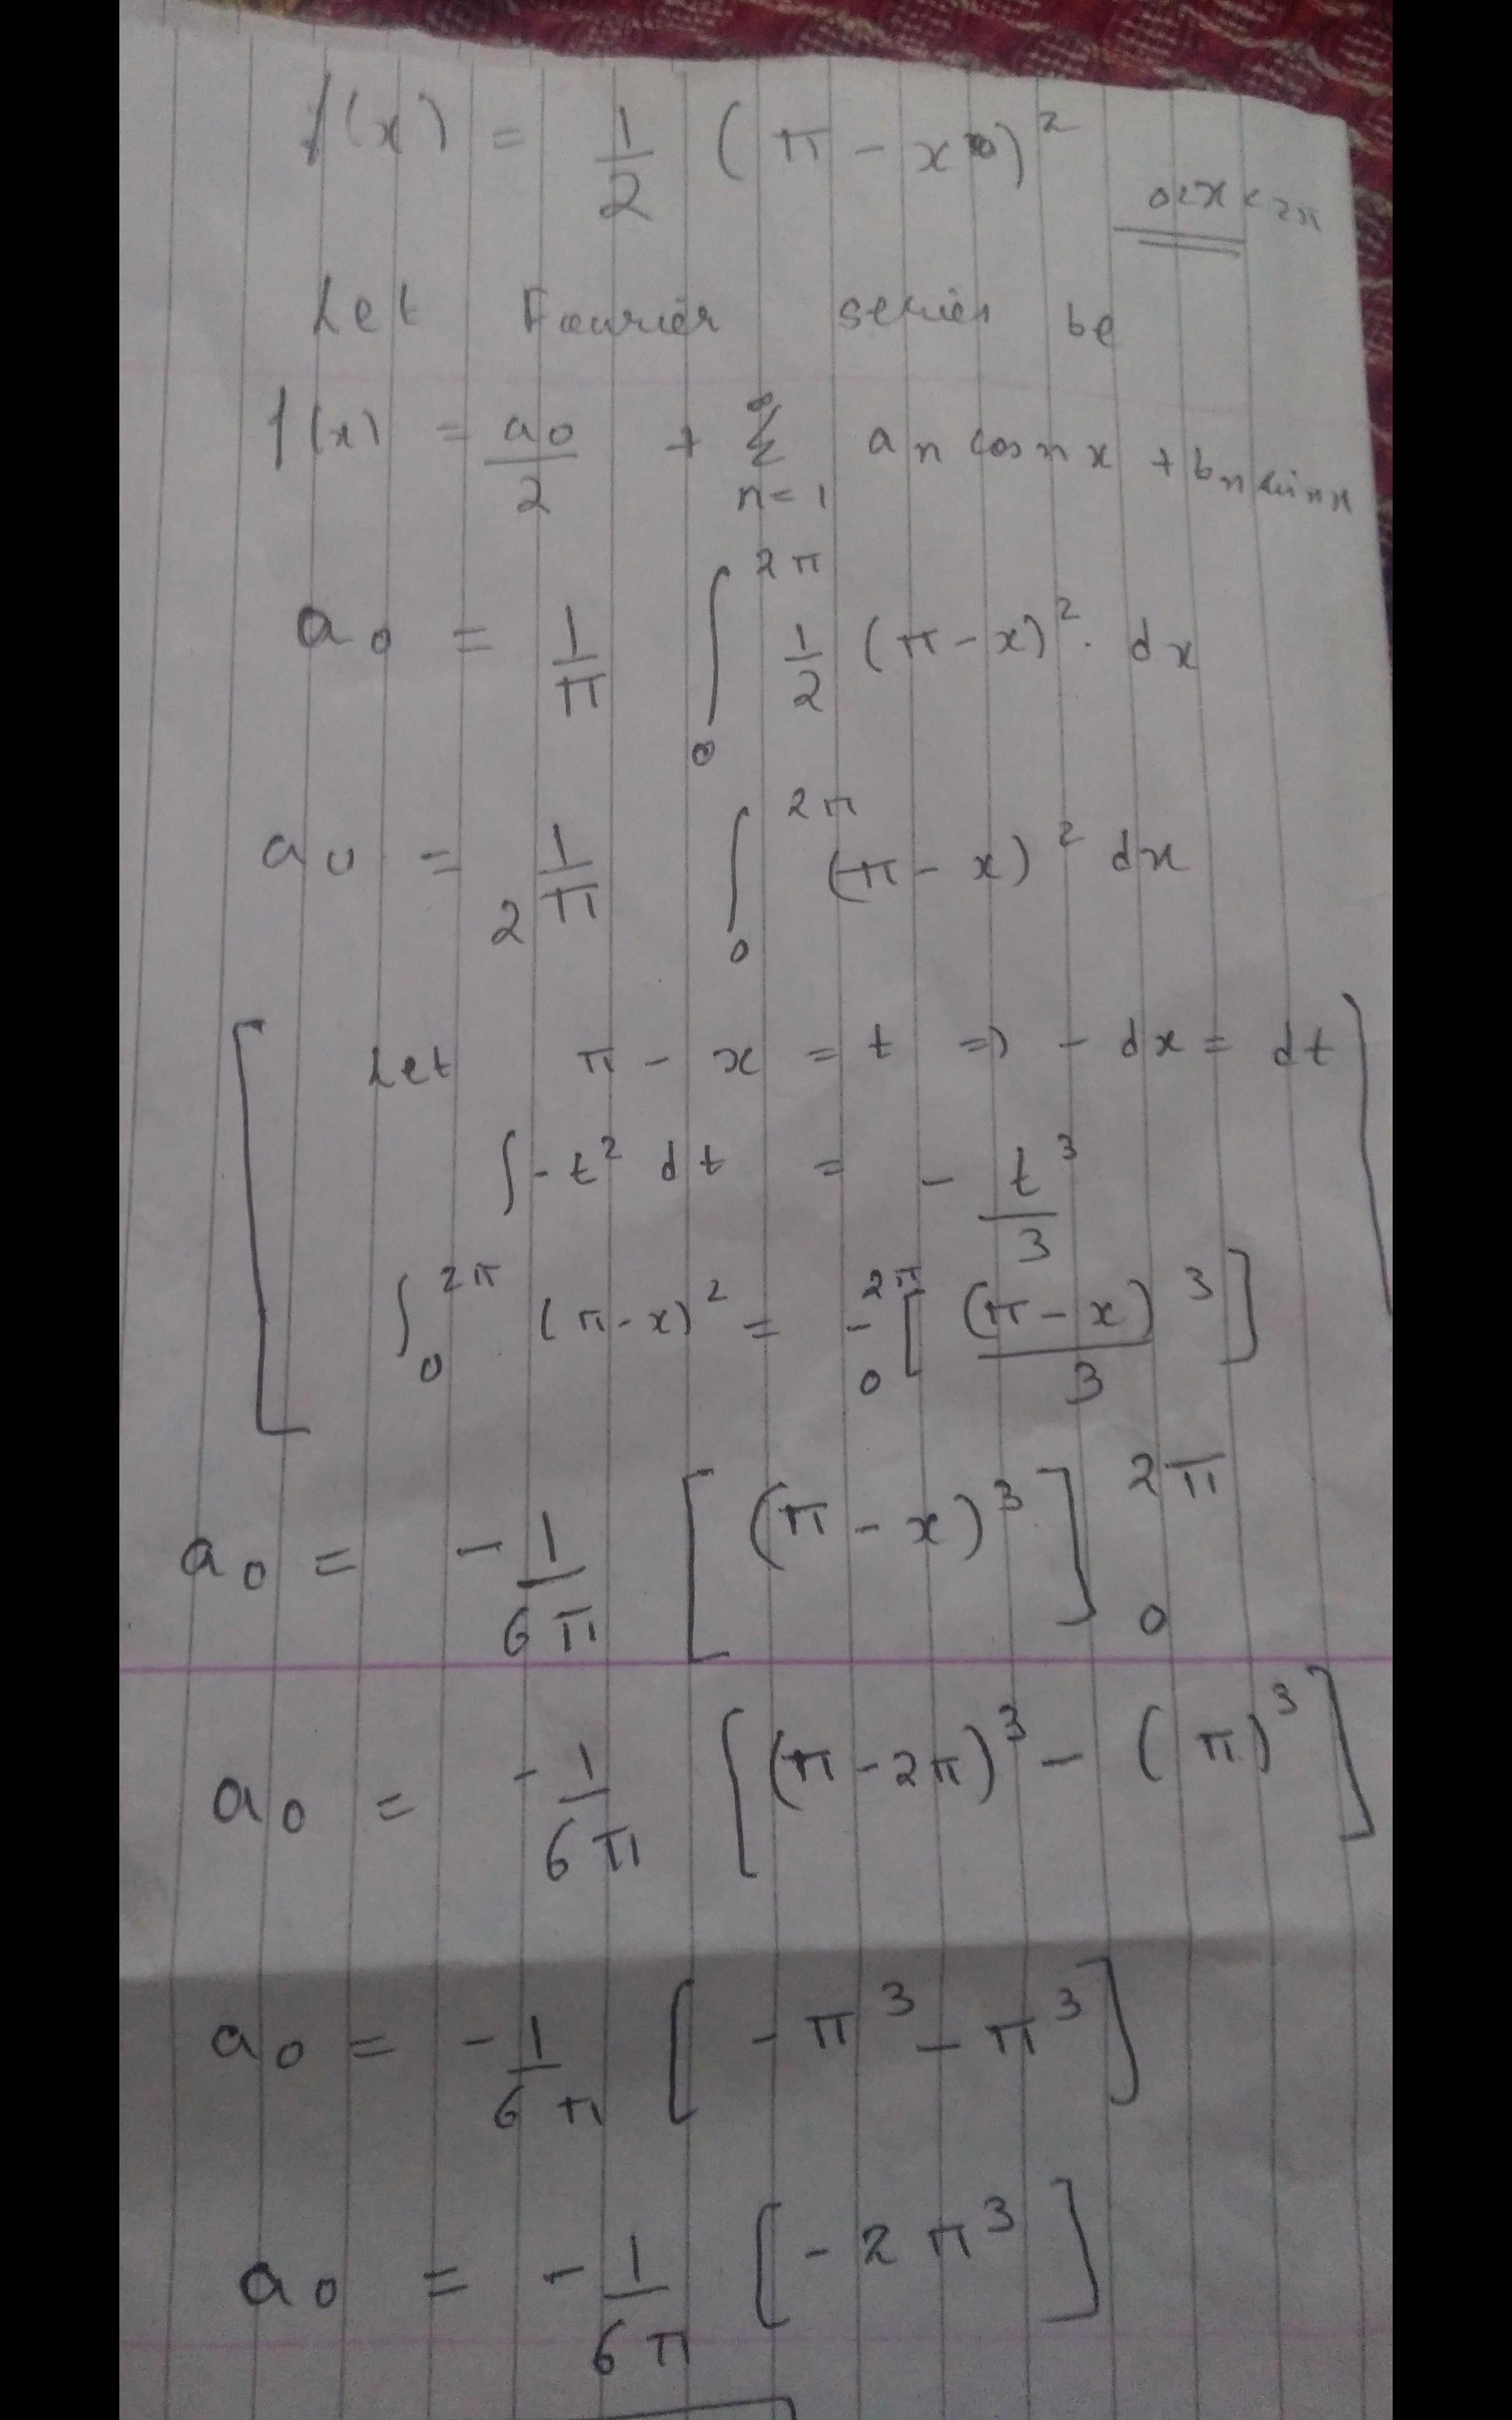 f(x) = 1/2 (π - x)²
0<x<2π
Let Fourier series be
f(x) = a₀/2 + ∑ₙ₌₁^∞ aₙ cos nx + bₙ sin nx
a₀ = 1/π ∫₀^2π 1/2 (π - x)² . dx
a₀ = 1/2π ∫₀^2π (π - x)² dx
Let π - x = t => - dx = dt
∫ - t² dt = - t³/3
∫₀^2π (π - x)² = - ₀^2π [ (π - x)³/3 ]
a₀ = - 1/6π [ (π - x)³ ]₀^2π
a₀ = - 1/6π [ (π - 2π)³ - (π)³ ]
a₀ = - 1/6π [ - π³ - π³ ]
a₀ = - 1/6π [ - 2π³ ]